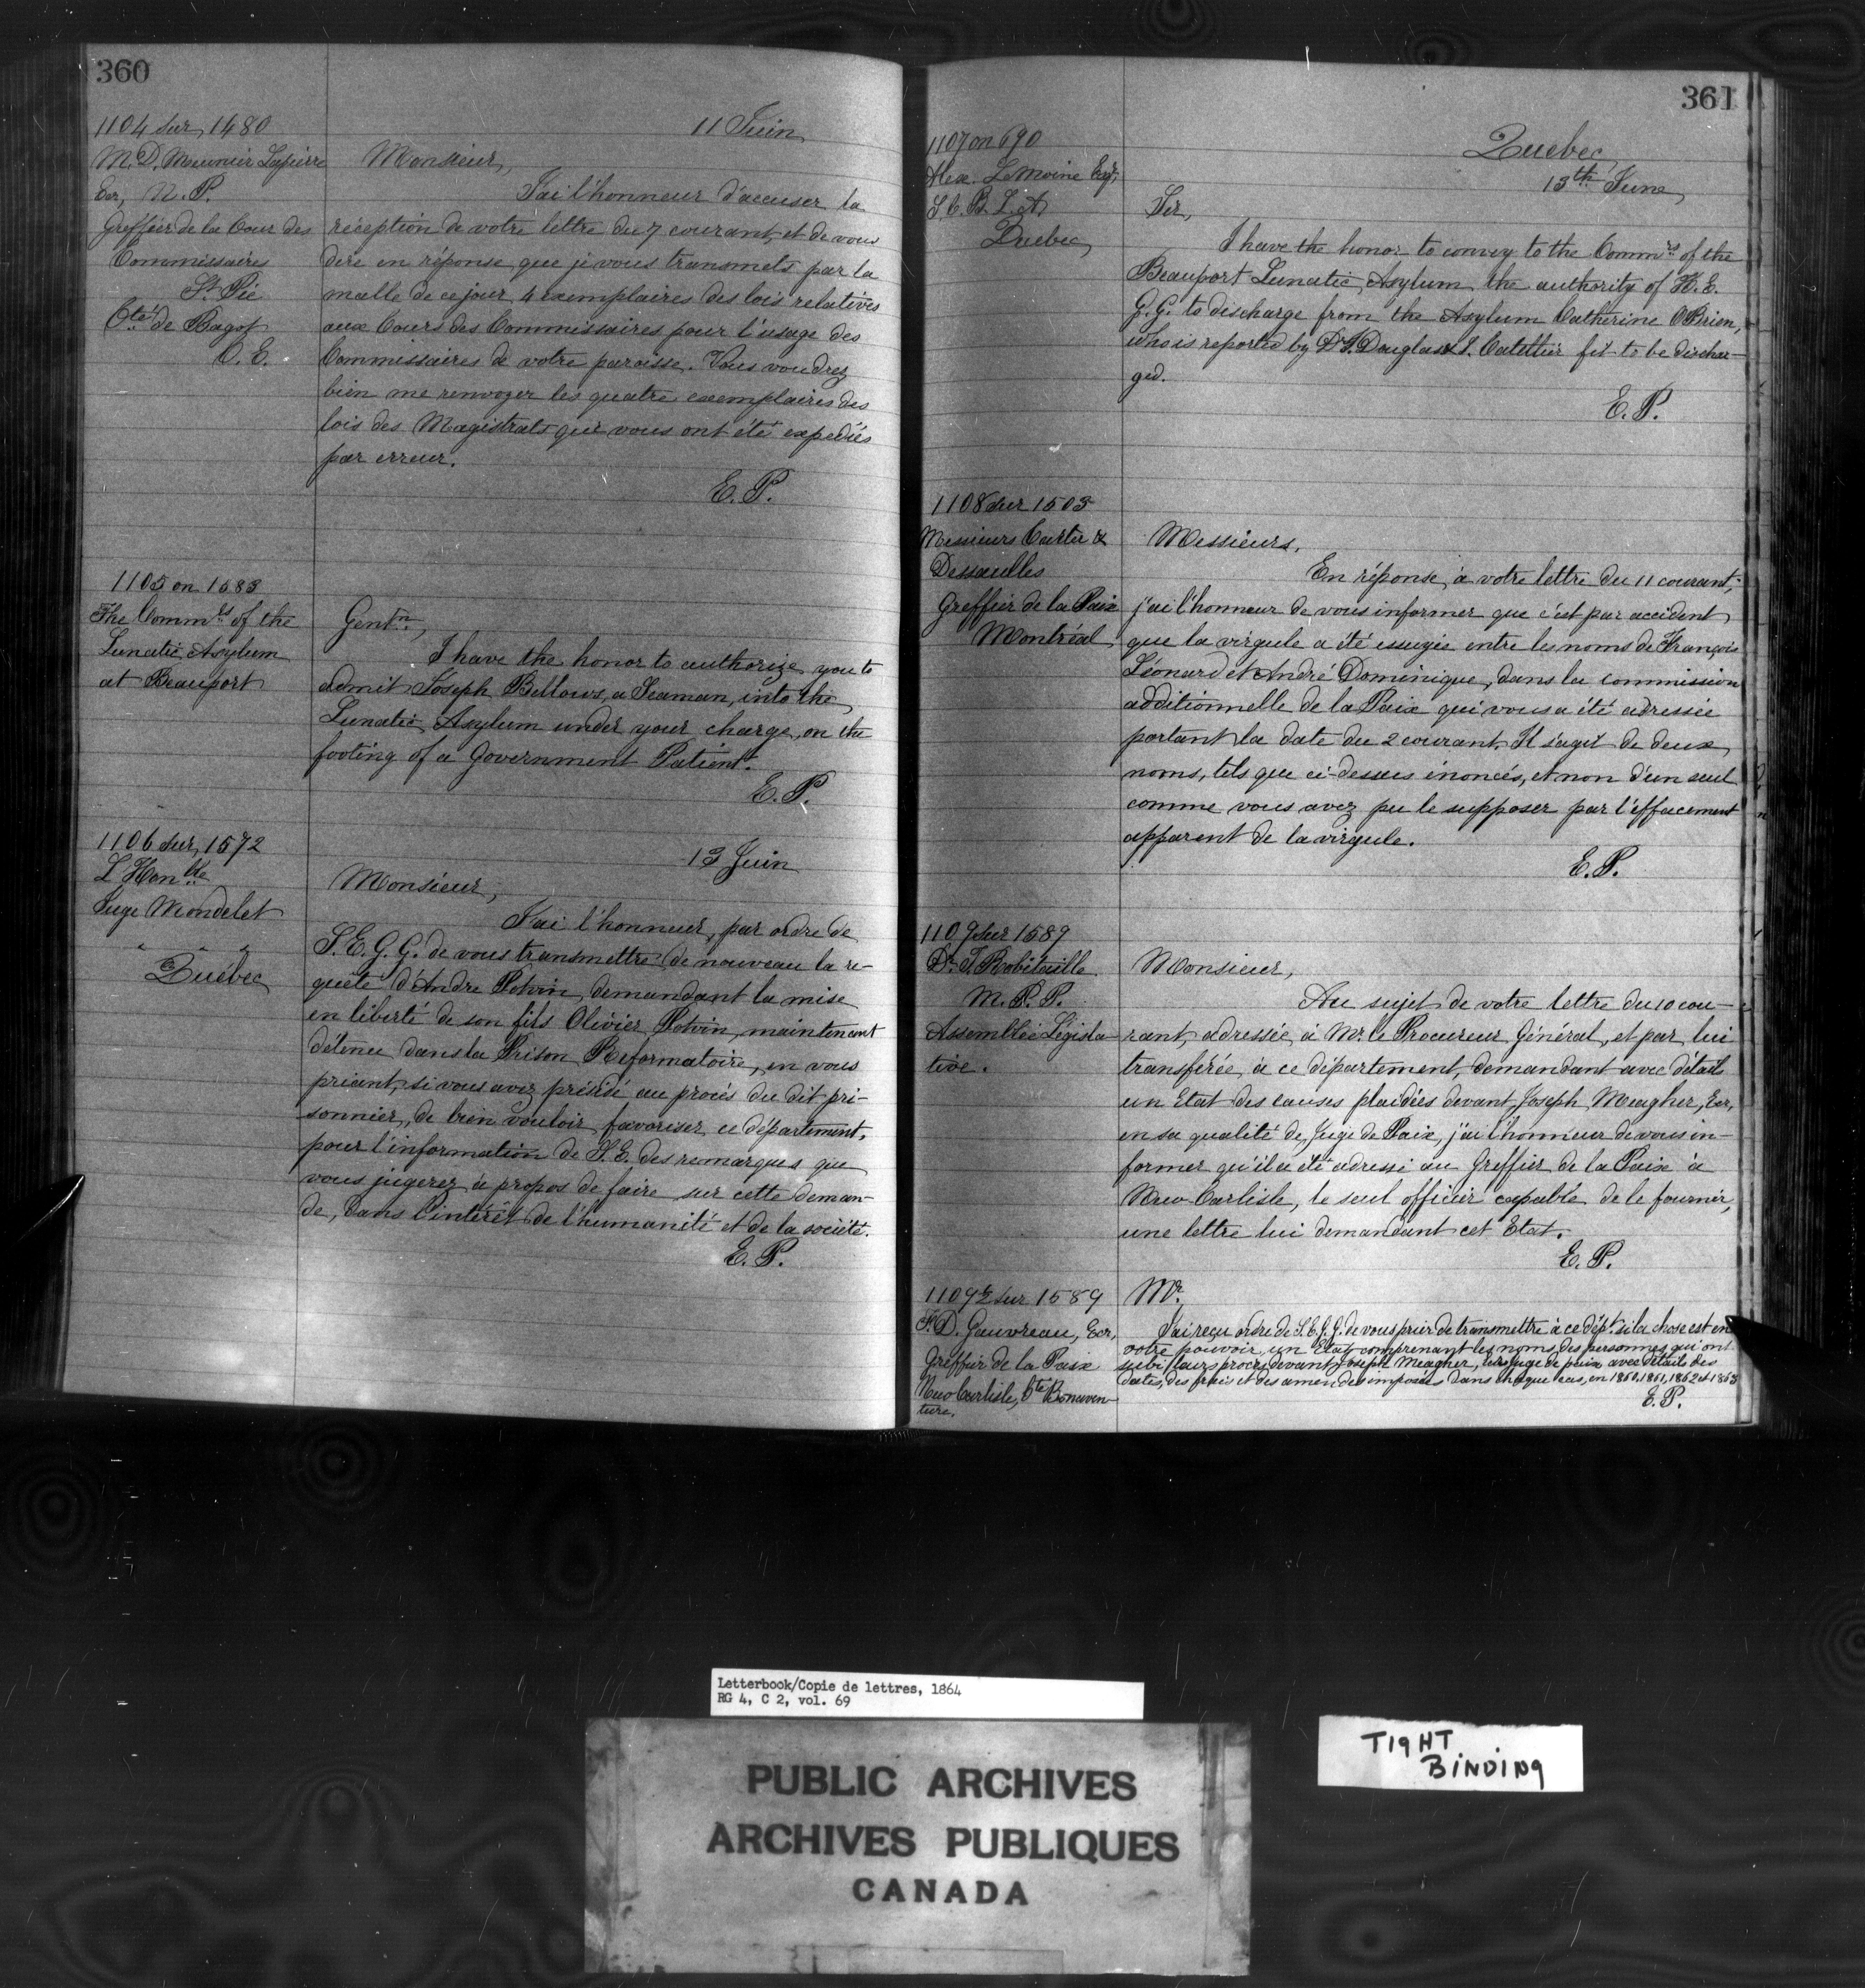 360
1104 sur 1480
M. D. Meunier Lapierre
Ecr, N. P.
Greffier de la Cour des
Commissaires
St. Pie
Cté de Bagot
C. E.
11 Juin
Monsieur,
J'ai l'honneur d'accuser la
réception de votre lettre du 7 courant, et de vous
dire en réponse que je vous transmets par la
malle de ce jour 4 exemplaires des lois relatives
aux Cours des Commissaires pour l'usage des
Commissaires de votre paroisse. Vous voudrez
bien me renvoyer les quatre exemplaires des
lois des Magistrats qui vous ont été expediés
par erreur.
E. P.
1105 on 1583
TheOmmrs of the
Lunatic Asylum
at Beauport
Gentn,
I have the honor to authorize you to
admit Joseph Bellows, a Seaman, into the
Lunatic Asylum under your charge, on the
footing of a Government Patient.
E. P.
1106 sur 1572
L'Honble
Juge Mondelet
" " "
Québec
13 Juin
Monsieur,
J'ai l'honneur, par ordre de
S. E. G. G. de vous transmettre de nouveau la re-
quête d'Andre Potvin, demandant la mise
en liberté de son fils Olivier Potvin, maintenant
détenu dans la Prison Reformatoire, en vous
priant, si vous avez présidé au procès du dit pri-
sonnier, de bien vouloir favoriser ce département,
pour l'information de S. E. des remarques que
vous jugerez à propos de faire sur cette deman-
de, dans l'intérêt de l'humanité et de la société.
E. P.
361
1107 on 690
Alex. LeMoine Esqr,
S C. B. L. A
Quebec
Quebec
13th June
Sir,
I have the honor to convey to the Commrs of the
Beauport Lunatic Asylum the authority of H. E.
G. G. to discharge from the Asylum Catherine OBrien,
who is reported by Drs. Douglas & Catellier fit to be dischar-
ged.
E. P.
1108 sur 1503
Messieurs Carter &
Dessaulles
Greffier de la Paix
Montréal
Messieurs,
En réponse à votre lettre du 11 courant,
j'ai l'honneur de vous informer que c'est par accident
que la virgule a été essuyée entre les noms de François
Léonard et André Dominique, dans la commission
additionnelle de la Paix qui vous a été adressée
portant la date du 2 courant. Il s'agit de deux
noms, tels que ci-dessus énoncés, et non d'un seul
comme vous avez pu le supposer par l'effacement
apparent de la virgule.
E. P.
1109 sur 1589
Dr. T. Robitaille
M. P. P.
Assemblée Législa-
tive.
Monsieur,
Au sujet de votre lettre du 10 cou-
rant, adressée à Mr. le Procureur Général, et par lui
transférée à ce département, demandant avec détails
un Etat des causes plaidées devant Joseph Meagher, Ecr,
en sa qualité de Juge de Paix, j'ai l'honneur de vous in-
former qu'il a été adressé au Greffier de la Paix à
New Carlisle, le seul officier capable de le fournir,
une lettre lui demandant cet Etat.
E. P.
1109½ sur 1589
D. Gauvreau, Ecr,
Greffier de la Paix
New Carlisle, Cté Bonaven-
ture.
Mr.
J'ai reçu ordre de S. E. G. G. de vous prier de transmettre à ce dépt. si la chose est en
votre pouvoir, un Etat comprenant les noms des personnes qui ont
subi leurs procès devant Joseph Meagher, Ecr Juge de paix avec détails des
dates, des frais et des amendes imposées dans chaque cas, en 1860, 1861, 1862 et 1863
E. P.
Letterbook/Copie de lettres, 1864
RG 4, C 2, vol. 69
PUBLIC ARCHIVES
ARCHIVES PUBLIQUES
CANADA
TIGHT
BINDING